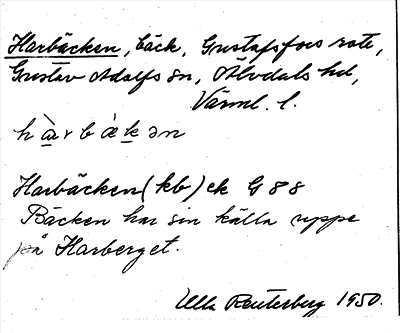 Harbäcken, bäck, Gustafsfors rote,
Gustav Adolfs sn, Älvdals hd,
Värml. l.
hàrbäkən
Harbäcken (kb) ek G 88
Bäcken har sin källa uppe
på Harberget.
Ulla Reuterberg 1950.